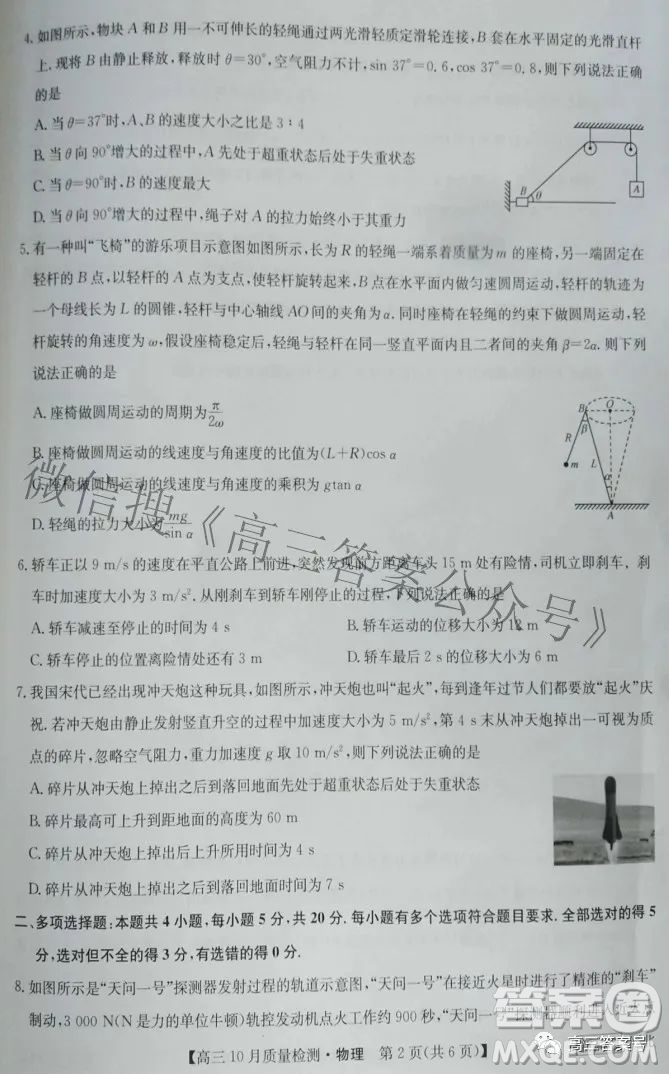 4. 如图所示,物块 A 和 B 用一不可伸长的轻绳通过两光滑轻质定滑轮连接,B 套在水平固定的光滑直杆
上. 现将 B 由静止释放,释放时 θ=30°,空气阻力不计,sin 37°=0.6,cos 37°=0.8,则下列说法正确
的是
A. 当 θ=37°时,A、B 的速度大小之比是 3∶4
B. 当 θ 向 90°增大的过程中,A 先处于超重状态后处于失重状态
C. 当 θ=90°时,B 的速度最大
D. 当 θ 向 90°增大的过程中,绳子对 A 的拉力始终小于其重力
B
θ
A
5. 有一种叫“飞椅”的游乐项目示意图如图所示,长为 R 的轻绳一端系着质量为 m 的座椅,另一端固定在
轻杆的 B 点,以轻杆的 A 点为支点,使轻杆旋转起来,B 点在水平面内做匀速圆周运动,轻杆的轨迹为
一个母线长为 L 的圆锥,轻杆与中心轴线 AO 间的夹角为 α. 同时座椅在轻绳的约束下做圆周运动,轻
杆旋转的角速度为 ω,假设座椅稳定后,轻绳与轻杆在同一竖直平面内且二者间的夹角 β=2α. 则下列
说法正确的是
A. 座椅做圆周运动的周期为 π/2ω
B. 座椅做圆周运动的线速度与角速度的比值为(L+R)cos α
C. 座椅做圆周运动的线速度与角速度的乘积为 gtan α
D. 轻绳的拉力大小为 mg/sin α
B
O
β
R
L
m
α
A
6. 轿车正以 9 m/s 的速度在平直公路上前进,突然发现前方距离车头 15 m 处有险情,司机立即刹车,刹
车时加速度大小为 3 m/s². 从刚刹车到轿车刚停止的过程,下列说法正确的是
A. 轿车减速至停止的时间为 4 s
B. 轿车运动的位移大小为 12 m
C. 轿车停止的位置离险情处还有 3 m
D. 轿车最后 2 s 的位移大小为 6 m
7. 我国宋代已经出现冲天炮这种玩具,如图所示,冲天炮也叫“起火”,每到逢年过节人们都要放“起火”庆
祝. 若冲天炮由静止发射竖直升空的过程中加速度大小为 5 m/s²,第 4 s 末从冲天炮上掉出一可视为质
点的碎片,忽略空气阻力,重力加速度 g 取 10 m/s²,则下列说法正确的是
A. 碎片从冲天炮上掉出之后到落回地面先处于超重状态后处于失重状态
B. 碎片最高可上升到距地面的高度为 60 m
C. 碎片从冲天炮上掉出后上升所用时间为 4 s
D. 碎片从冲天炮上掉出之后到落回地面的时间为 7 s
二、多项选择题:本题共 4 小题,每小题 5 分,共 20 分. 每小题有多个选项符合题目要求. 全部选对的得 5
分,选对但不全的得 3 分,有选错的得 0 分.
8. 如图所示是“天问一号”探测器发射过程的轨道示意图,“天问一号”在接近火星时进行了精准的“刹车”
制动,3 000 N(N 是力的单位牛顿)轨控发动机点火工作约 900 秒,“天问一号”
【高三 10 月质量检测·物理 第 2 页(共 6 页)】
微信搜《高三答案公众号》
答案圈
高三答案号
MXQE.COM